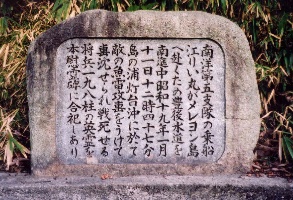 南洋第五支隊の乗船
江りい丸はメレヨン島
へ赴くため豊後水道を
南進中昭和十九年一月
十一日十二時四十七分
島の浦灯台沖に於て
敵の魚雷攻撃をうけて
轟沈せられ戦死せる
将兵一九八柱の英霊を
本慰霊碑に合祀しあり